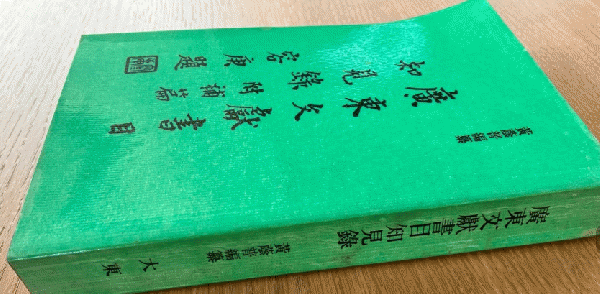 黃蔭普編纂
廣東文獻書目
知見錄附補篇
容庚題
廣東文獻書目知見錄
黃蔭普編纂
大東